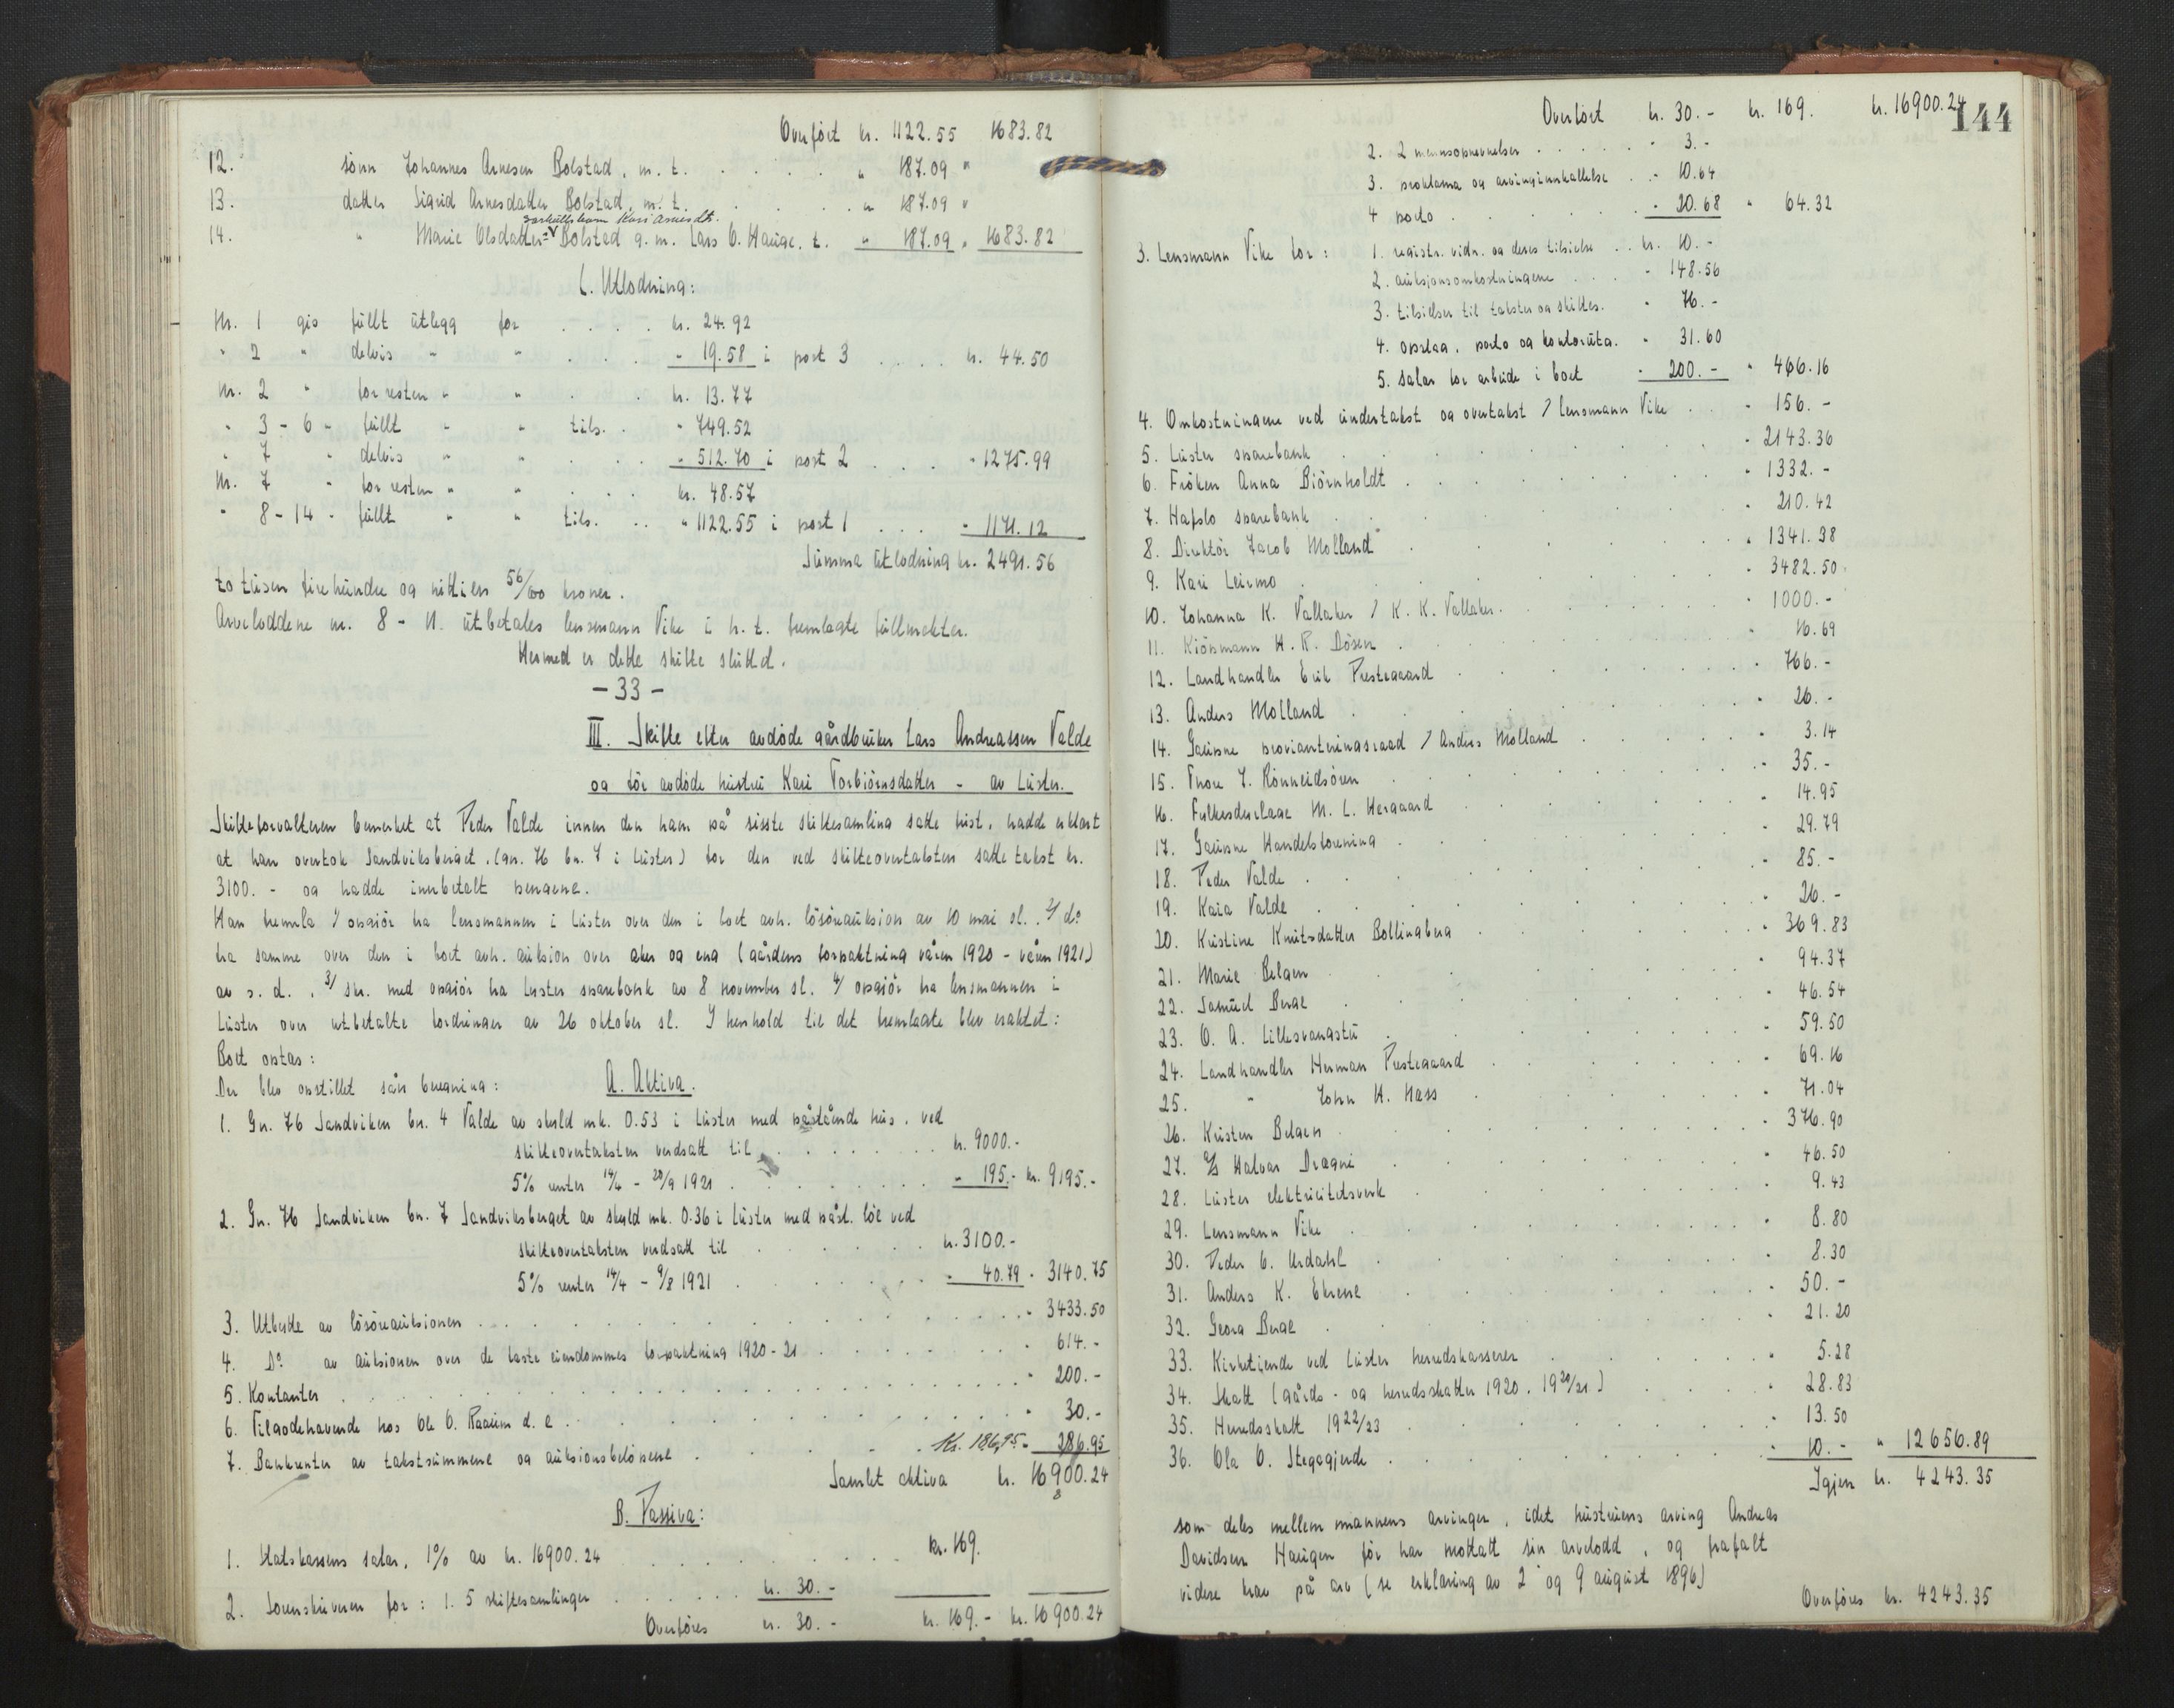 Overført kr. 1122.55 1683.82
12. sønn Johannes Arnesen Bolstad, m. t. . . . " 187.09 "
13. datter Sigrid Arnesdatter Bolstad, m. t. . . . " 187.09 "
særkullsbarn Kari Arnesdt.
14. " Marie Olsdatter Bolstad g. m. Lars O. Hauge, t. " 187.09 " 1683.82
C. Utlodning:
Nr. 1 gis fullt utlegg for . . . . kr. 24.92
" 2 " delvis " " . . . . " 19.58 i post 3 . . . . kr. 44.50
Nr. 2 " for resten " " . . . kr. 13.77
" 3 - 6 " fullt " " tils. . . " 749.52
" 7 " delvis " " . . . . " 512.70 i post 2 . . . . " 1275.99
Nr. 7 " for resten " " . . . . kr. 48.57
" 8 - 14 " fullt " " tils. . . " 1122.55 i post 1 . . . " 1171.12
Summa utlodning kr. 2491.56
to tusen firehundre og nittien 56/100 kroner.
Arveloddene nr. 8 - 11. utbetales lensmann Vike i h. t. fremlagte fullmakter.
Hermed er dette skifte sluttet.
- 33 -
III. Skifte efter avdøde gårdbruker Lars Andreassen Valde
og før avdøde hustru Kari Torbjørnsdatter - av Luster.
Skifteforvalteren bemerket at Peder Valde innen den ham på siste skiftesamling satte frist, hadde erklært
at han overtok Sandviksberget, (gn. 76 bn. 7 i Luster) for den ved skifteovertaksten satte takst kr.
3100. - og hadde innbetalt pengene.
Han fremla 1/ opgjør fra lensmannen i Luster over den i boet avh. løsøreauksjon av 10 mai sl. 2/ do
fra samme over den i boet avh. auksjon over aker og eng (gårdens forpaktning våren 1920 - våren 1921)
av s. d. , 3/ skr. med opgjør fra Luster sparebank av 8 november sl. 4/ opgjør fra lensmannen i
Luster over utbetalte fordringer av 26 oktober sl. I henhold til det fremlagte blev eraktet:
Boet optas:
Der blev opstillet sån beregning: A. Aktiva.
1. Gn. 76 Sandviken bn. 4 Valde av skyld mk. 0.53 i Luster med påstående hus, ved
skifteovertaksten verdsatt til . . . . . . . kr. 9000.-
5% renter 14/4 - 20/9 1921 . . . . . . . . " 195.- kr. 9195.-
2. Gn. 76 Sandviken bn. 7 Sandviksberget av skyld mk. 0.36 i Luster med påst. löe ved
skifteovertaksten verdsatt til . . . . . . . kr. 3100.-
5% renter 14/4 - 9/8 1921 . . . . . . . . " 40.79 " 3140.75
3. Utbytte av løsøreauksjonen . . . . . . . . . . . . " 3433.50
4. Do av auksjonen over de faste eiendommes forpaktning 1920-21 . . . . . . . . " 614.-
5. Kontanter . . . . . . . . . . . . . . . " 200.-
6. Tilgodehavende hos Ole O. Raaum d. e. . . . . . . . . . . " 30.-
7. Bankrenter av takstsummene og auksjonsbeløpene . . . . . Kr. 186,95. " 286.95
Samlet aktiva kr. 16900.24
8
B. Passiva:
1. Statskassens salær, 1% av kr. 16900.24 . . . . . . . . . kr. 169.
2. Sorenskriveren for: 1. 5 skiftesamlinger . . . . . . kr. 30.-
Overføres kr. 30.- kr. 169.- kr. 16900.24
144
Overført kr. 30.- kr. 169. kr. 16900.24
2. 2 mennsopnevnelser . . . . . " 3.-
3. proklama og arvinginnkallelse . . " 10.64
4 porto . . . . . . . " 20.68 " 64.32
3. Lensmann Vike for: 1. registr. vidn. og deres tilsielse . . kr. 10.-
2. auksjonsomkostningene . . . " 148.56
3. tilsielser til takster og skifter. " 76.-
4. opslag, porto og kontorutg. " 31.60
5. salær for arbeide i boet " 200.- " 466.16
4. Omkostningene ved undertakst og overtakst / lensmann Vike . . " 156.-
5. Luster sparebank . . . . . . . . " 2143.36
6. Frøken Anna Bjørnholdt . . . . . . . . " 1332.-
7. Hafslo sparebank . . . . . . . . " 210.42
8. Direktør Jacob Molland . . . . . . . . " 1341.98
9. Kari Leirmo . . . . . . . . " 3482.50
10. Johanna K. Vallaker / K. K. Vallaker. . . . . . . . " 1000.-
11. Kjøbmann H. R. Døsen . . . . . . . . " 16.69
12. Landhandler Erik Prestegaard . . . . . . . . " 766.-
13. Anders Molland . . . . . . . . " 26.-
14. Gaupne provianteringsraad / Anders Molland . . . . . . " 3.14
15. Thore J. Rønneidsøren . . . . . . . . " 35.-
16. M. L. Hergaard . . . . . . . . " 14.95
17. Gaupne Handelsforening . . . . . . . . " 29.79
18. Peder Valde . . . . . . . . " 85.-
19. Kaia Valde . . . . . . . . " 26.-
20. Kristine Knutsdatter Bollingberg . . . . . . . . " 369.83
21. Marie Belgen . . . . . . . . " 94.37
22. Samuel Berge . . . . . . . . " 46.54
23. O. A. Lillesvangstu . . . . . . . . " 59.50
24. Landhandler Herman Prestegaard . . . . . . . . " 69.16
25. " John H. Hass . . . . . . . . " 71.04
26. Kristen Belgen . . . . . . . . " 376.90
27. A/S Halvar Dragni . . . . . . . . " 46.50
28. Luster elektricitetsverk . . . . . . . . " 9.43
29. Lensmann Vike . . . . . . . . " 8.80
30. Peder O. Urdahl . . . . . . . . " 8.30
31. Anders K. Ekrene . . . . . . . . " 50.-
32. Georg Berge . . . . . . . . " 21.20
33. Kirketiende ved Luster herredskasserer . . . . . . " 5.28
34. Skatt (gårds- og herredsskatter 1920, 1920/21) . . . . . " 28.83
35. Herredsskatt 1922/23 . . . . . . . . " 13.50
36. Ola O. Stegegjerde . . . . . . . . " 10.- " 12656.89
Igjen kr. 4243.35
som deles mellem mannens arvinger, idet hustruens arving Andreas
Davidsen Haugen før har mottatt sin arvelodd, og frafalt
videre krav på arv (se erklæring av 2 og 9 august 1896)
Overføres kr. 4243.35